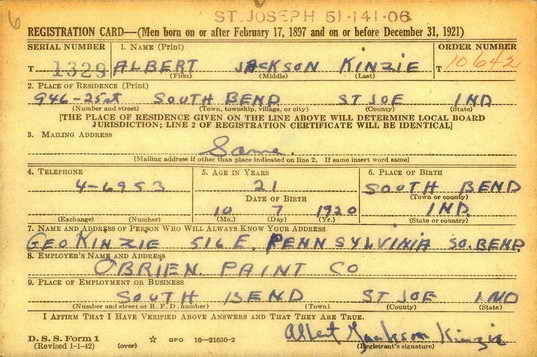 6
ST. JOSEPH 51-141-06
REGISTRATION CARD—(Men born on or after February 17, 1897 and on or before December 31, 1921)
SERIAL NUMBER 1. NAME (Print) ORDER NUMBER
T 1329 ALBERT JACKSON KINZIE T 10642
(First) (Middle) (Last)
2. PLACE OF RESIDENCE (Print)
946-25st SOUTH BEND ST JOE IND
(Number and street) (Town, township, village, or city) (County) (State)
[THE PLACE OF RESIDENCE GIVEN ON THE LINE ABOVE WILL DETERMINE LOCAL BOARD
JURISDICTION; LINE 2 OF REGISTRATION CERTIFICATE WILL BE IDENTICAL]
3. MAILING ADDRESS
Same.
[Mailing address if other than place indicated on line 2. If same insert word same]
4. TELEPHONE 5. AGE IN YEARS 6. PLACE OF BIRTH
4-6953 21 SOUTH BEND
DATE OF BIRTH (Town or county)
10 7 1920 IND
(Exchange) (Number) (Mo.) (Day) (Yr.) (State or country)
7. NAME AND ADDRESS OF PERSON WHO WILL ALWAYS KNOW YOUR ADDRESS
GEO KINZIE 516 E. PENNSYLVINIA SO. BEND
8. EMPLOYER'S NAME AND ADDRESS
O'BRIEN PAINT CO
9. PLACE OF EMPLOYMENT OR BUSINESS
SOUTH BEND ST JOE IND
(Number and street or R. F. D. number) (Town) (County) (State)
I AFFIRM THAT I HAVE VERIFIED ABOVE ANSWERS AND THAT THEY ARE TRUE.
D. S. S. Form 1 Albert Jackson Kinzie
(Revised 1-1-42) (over) ☆ GPO 16—21630-2 (Registrant's signature)